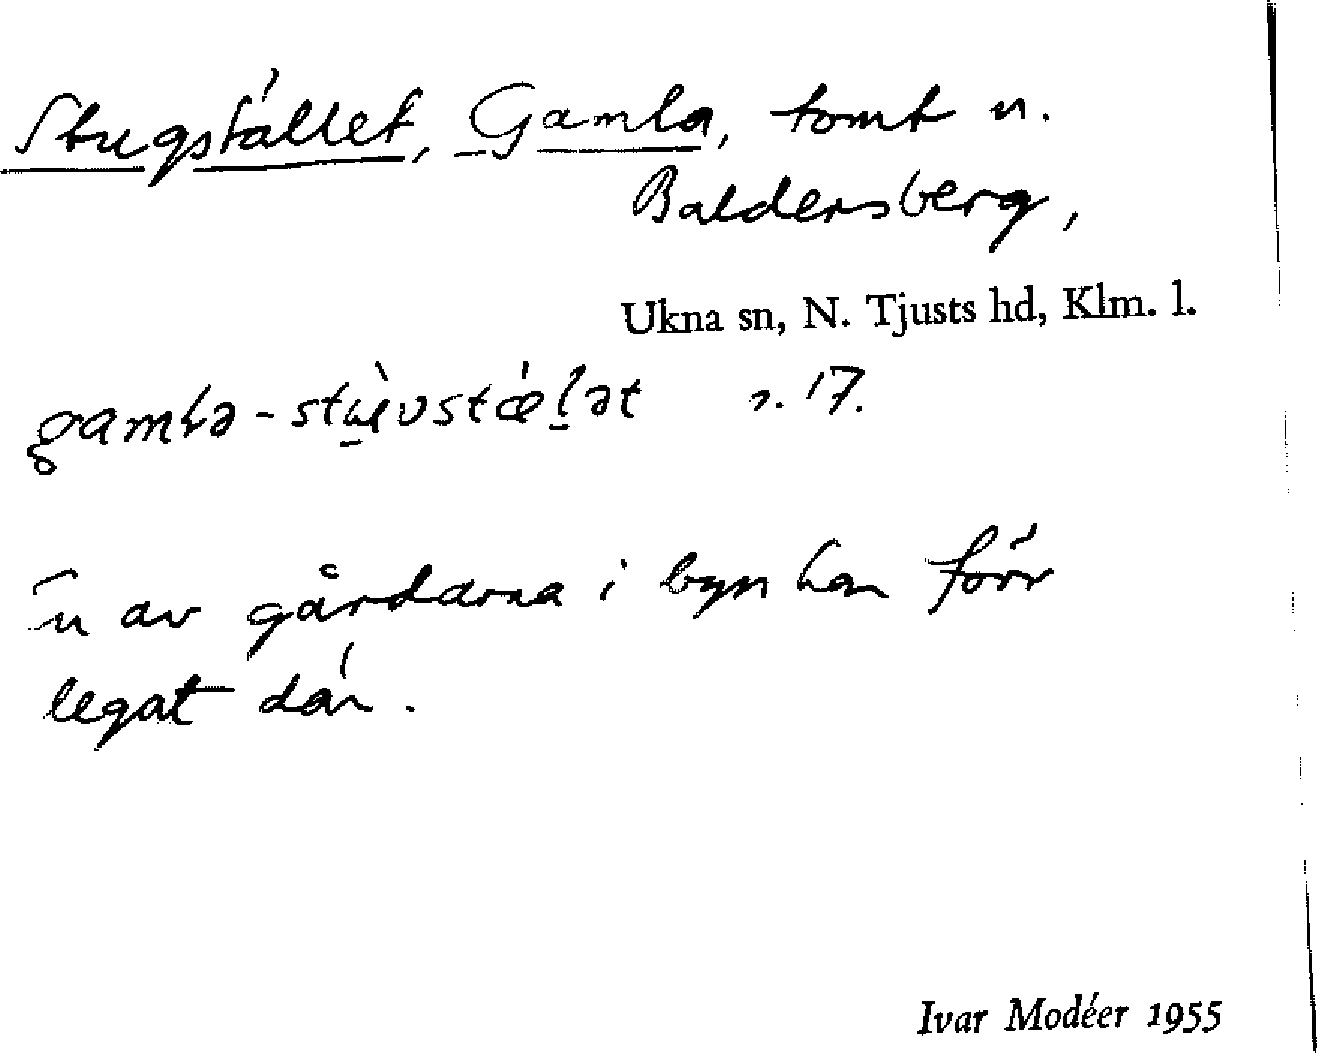 Stugstället, Gamla, tomt n.
Baldersberg,
Ukna sn, N. Tjusts hd, Klm. l.
s. 17.
En av gårdarna i byn har förr
legat där.
Ivar Modéer 1955